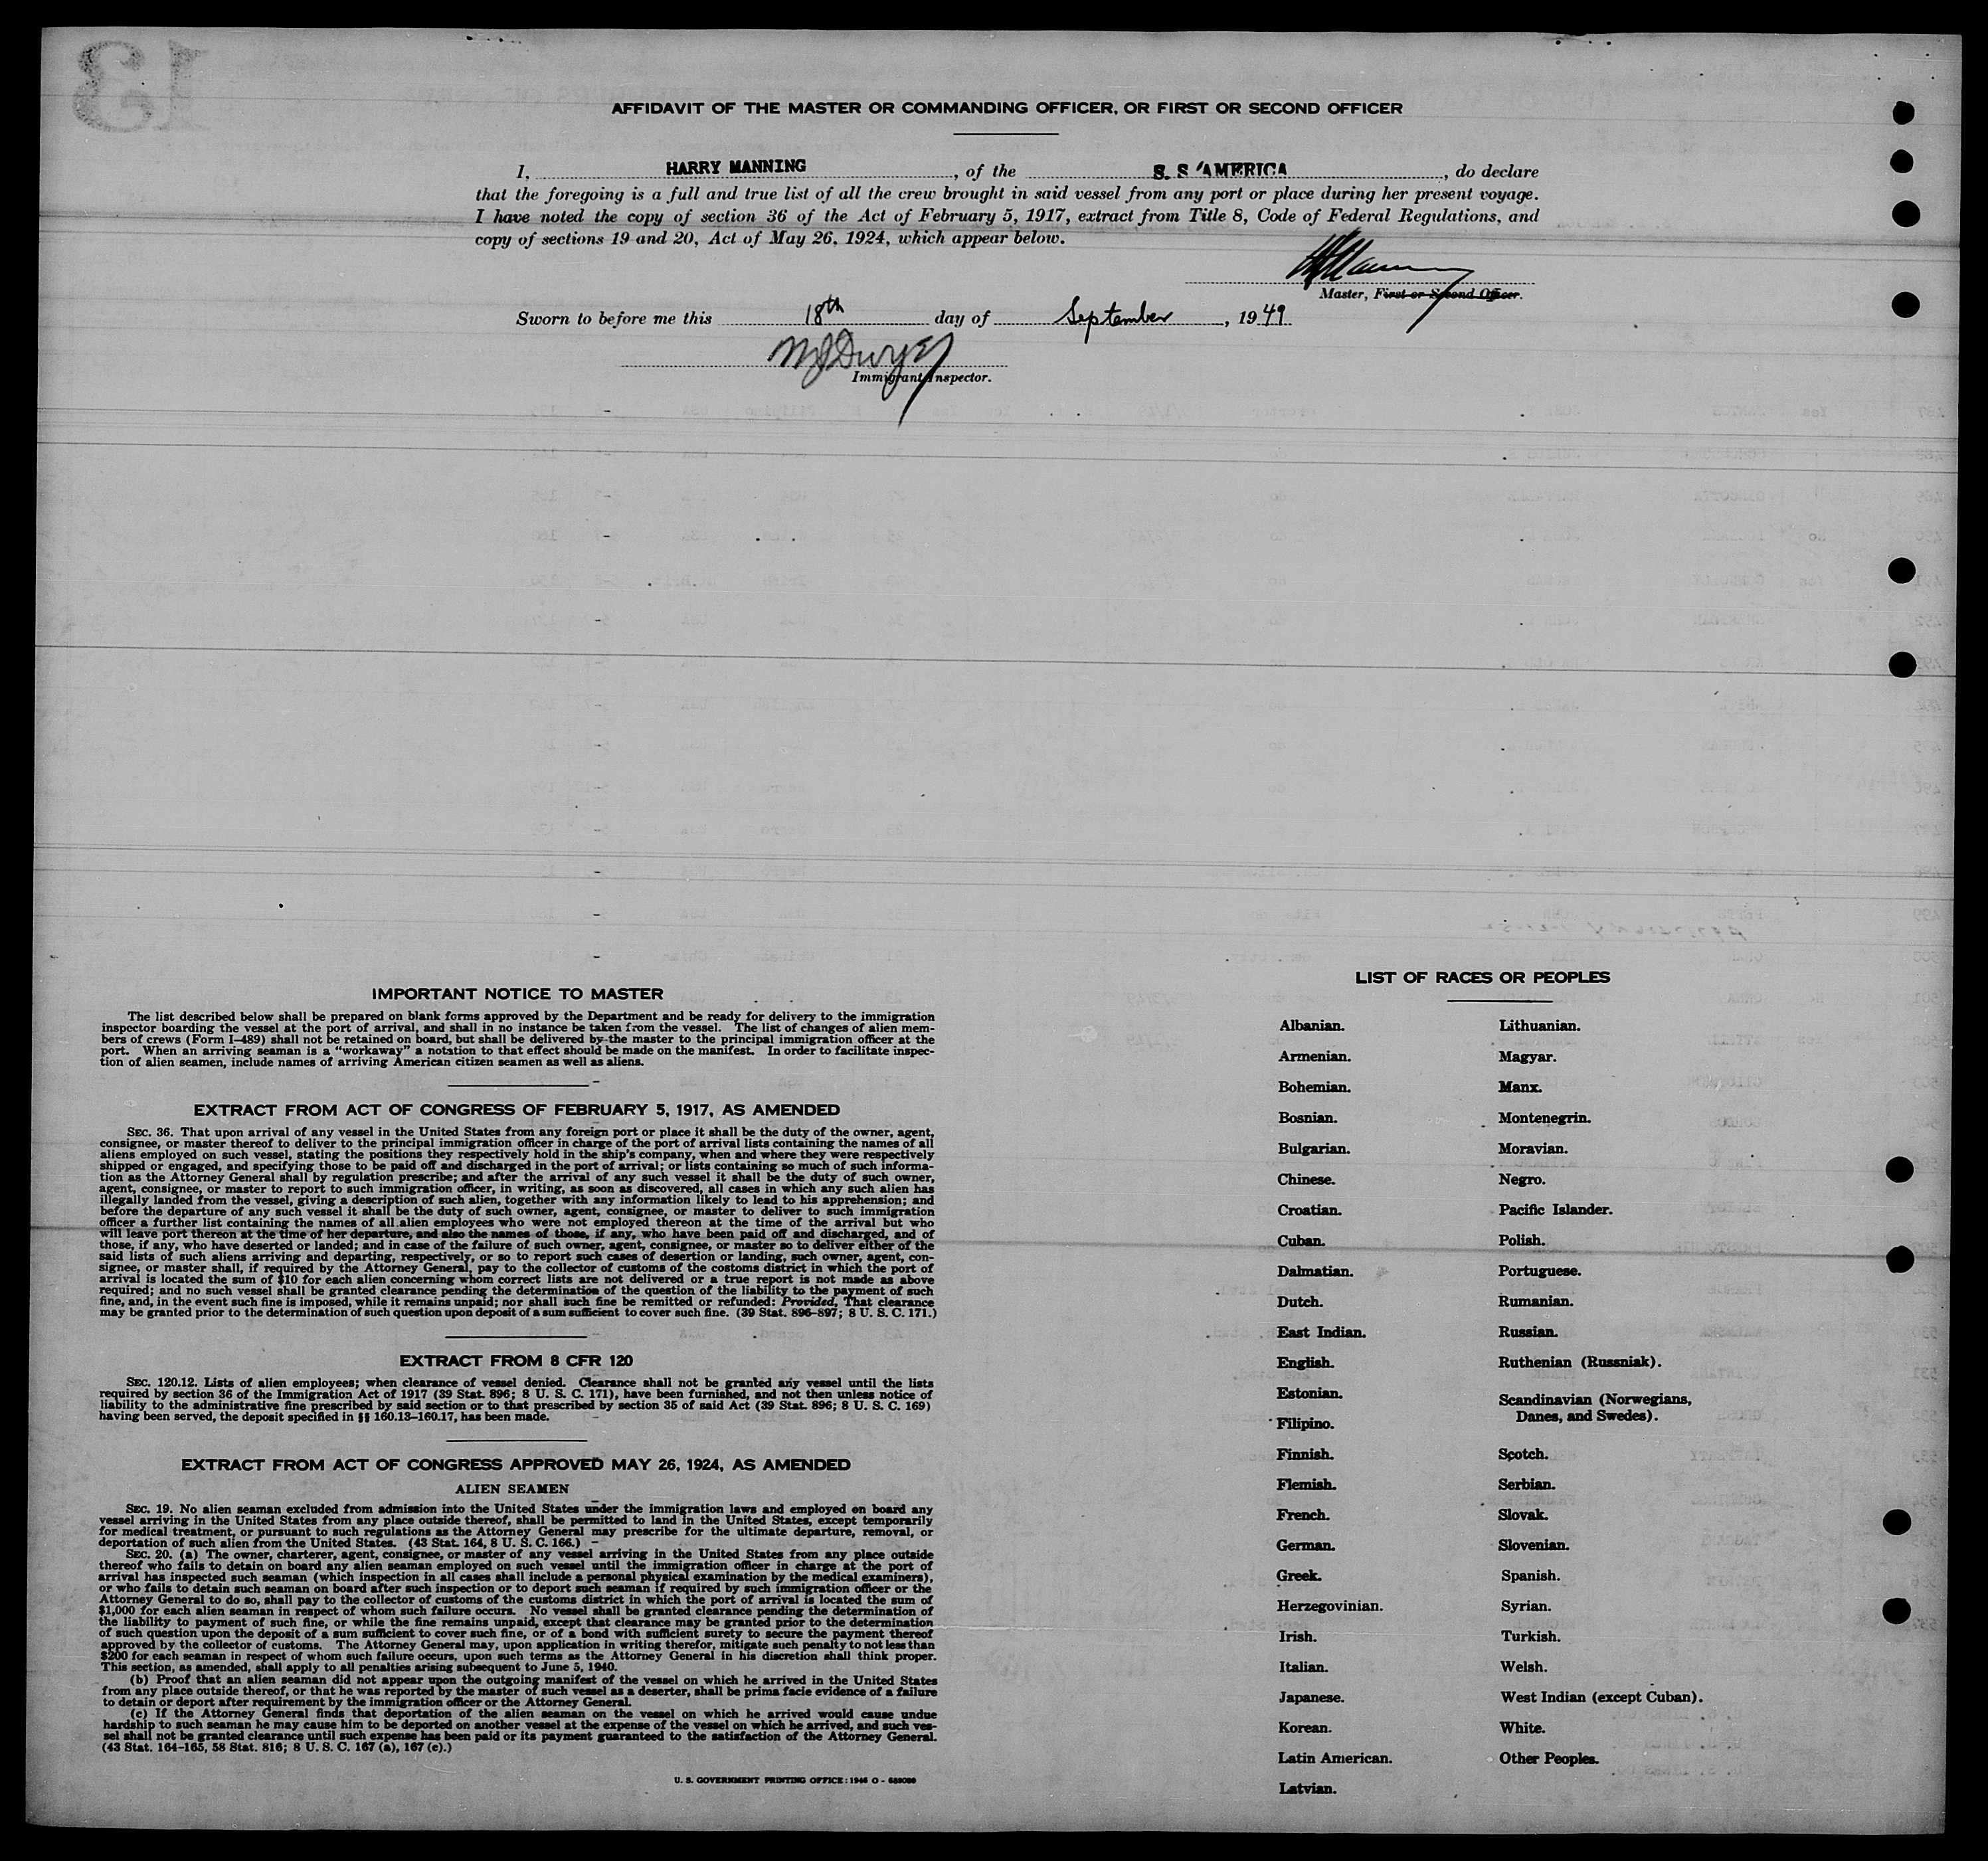 13
AFFIDAVIT OF THE MASTER OR COMMANDING OFFICER, OR FIRST OR SECOND OFFICER
I, HARRY MANNING, of the S. S 'AMERICA, do declare
that the foregoing is a full and true list of all the crew brought in said vessel from any port or place during her present voyage.
I have noted the copy of section 36 of the Act of February 5, 1917, extract from Title 8, Code of Federal Regulations, and
copy of sections 19 and 20, Act of May 26, 1924, which appear below.
HManning
Master, First or Second Officer.
Sworn to before me this 18th day of September, 1949
MJDwyer
Immigrant Inspector.
IMPORTANT NOTICE TO MASTER
The list described below shall be prepared on blank forms approved by the Department and be ready for delivery to the immigration
inspector boarding the vessel at the port of arrival, and shall in no instance be taken from the vessel. The list of changes of alien mem-
bers of crews (Form I-489) shall not be retained on board, but shall be delivered by the master to the principal immigration officer at the
port. When an arriving seaman is a "workaway" a notation to that effect should be made on the manifest. In order to facilitate inspec-
tion of alien seamen, include names of arriving American citizen seamen as well as aliens.
EXTRACT FROM ACT OF CONGRESS OF FEBRUARY 5, 1917, AS AMENDED
SEC. 36. That upon arrival of any vessel in the United States from any foreign port or place it shall be the duty of the owner, agent,
consignee, or master thereof to deliver to the principal immigration officer in charge of the port of arrival lists containing the names of all
aliens employed on such vessel, stating the positions they respectively hold in the ship's company, when and where they were respectively
shipped or engaged, and specifying those to be paid off and discharged in the port of arrival; or lists containing so much of such informa-
tion as the Attorney General shall by regulation prescribe; and after the arrival of any such vessel it shall be the duty of such owner,
agent, consignee, or master to report to such immigration officer, in writing, as soon as discovered, all cases in which any such alien has
illegally landed from the vessel, giving a description of such alien, together with any information likely to lead to his apprehension; and
before the departure of any such vessel it shall be the duty of such owner, agent, consignee, or master to deliver to such immigration
officer a further list containing the names of all alien employees who were not employed thereon at the time of the arrival but who
will leave port thereon at the time of her departure, and also the names of those, if any, who have been paid off and discharged, and of
those, if any, who have deserted or landed; and in case of the failure of such owner, agent, consignee, or master so to deliver either of the
said lists of such aliens arriving and departing, respectively, or so to report such cases of desertion or landing, such owner, agent, con-
signee, or master shall, if required by the Attorney General, pay to the collector of customs of the costoms district in which the port of
arrival is located the sum of $10 for each alien concerning whom correct lists are not delivered or a true report is not made as above
required; and no such vessel shall be granted clearance pending the determination of the question of the liability to the payment of such
fine, and, in the event such fine is imposed, while it remains unpaid; nor shall such fine be remitted or refunded: Provided, That clearance
may be granted prior to the determination of such question upon deposit of a sum sufficient to cover such fine. (39 Stat. 896-897; 8 U. S. C. 171.)
EXTRACT FROM 8 CFR 120
SEC. 120.12. Lists of alien employees; when clearance of vessel denied. Clearance shall not be granted any vessel until the lists
required by section 36 of the Immigration Act of 1917 (39 Stat. 896; 8 U. S. C. 171), have been furnished, and not then unless notice of
liability to the administrative fine prescribed by said section or to that prescribed by section 35 of said Act (39 Stat. 896; 8 U. S. C. 169)
having been served, the deposit specified in §§ 160.13-160.17, has been made.
EXTRACT FROM ACT OF CONGRESS APPROVED MAY 26, 1924, AS AMENDED
ALIEN SEAMEN
SEC. 19. No alien seaman excluded from admission into the United States under the immigration laws and employed on board any
vessel arriving in the United States from any place outside thereof, shall be permitted to land in the United States, except temporarily
for medical treatment, or pursuant to such regulations as the Attorney General may prescribe for the ultimate departure, removal, or
deportation of such alien from the United States. (43 Stat. 164, 8 U. S. C. 166.)
SEC. 20. (a) The owner, charterer, agent, consignee, or master of any vessel arriving in the United States from any place outside
thereof who fails to detain on board any alien seaman employed on such vessel until the immigration officer in charge at the port of
arrival has inspected such seaman (which inspection in all cases shall include a personal physical examination by the medical examiners),
or who fails to detain such seaman on board after such inspection or to deport such seaman if required by such immigration officer or the
Attorney General to do so, shall pay to the collector of customs of the customs district in which the port of arrival is located the sum of
$1,000 for each alien seaman in respect of whom such failure occurs. No vessel shall be granted clearance pending the determination of
the liability to the payment of such fine, or while the fine remains unpaid, except that clearance may be granted prior to the determination
of such question upon the deposit of a sum sufficient to cover such fine, or of a bond with sufficient surety to secure the payment thereof
approved by the collector of customs. The Attorney General may, upon application in writing therefor, mitigate such penalty to not less than
$200 for each seaman in respect of whom such failure occurs, upon such terms as the Attorney General in his discretion shall think proper.
This section, as amended, shall apply to all penalties arising subsequent to June 5, 1940.
(b) Proof that an alien seaman did not appear upon the outgoing manifest of the vessel on which he arrived in the United States
from any place outside thereof, or that he was reported by the master of such vessel as a deserter, shall be prima facie evidence of a failure
to detain or deport after requirement by the immigration officer or the Attorney General.
(c) If the Attorney General finds that deportation of the alien seaman on the vessel on which he arrived would cause undue
hardship to such seaman he may cause him to be deported on another vessel at the expense of the vessel on which he arrived, and such ves-
sel shall not be granted clearance until such expense has been paid or its payment guaranteed to the satisfaction of the Attorney General.
(43 Stat. 164-165, 58 Stat. 816; 8 U. S. C. 167 (a), 167 (c).)
U. S. GOVERNMENT PRINTING OFFICE : 1946 O -
LIST OF RACES OR PEOPLES
Albanian.
Armenian.
Bohemian.
Bosnian.
Bulgarian.
Chinese.
Croatian.
Cuban.
Dalmatian.
Dutch.
East Indian.
English.
Estonian.
Filipino.
Finnish.
Flemish.
French.
German.
Greek.
Herzegovinian.
Irish.
Italian.
Japanese.
Korean.
Latin American.
Latvian.
Lithuanian.
Magyar.
Manx.
Montenegrin.
Moravian.
Negro.
Pacific Islander.
Polish.
Portuguese.
Rumanian.
Russian.
Ruthenian (Russniak).
Scandinavian (Norwegians,
Danes, and Swedes).
Scotch.
Serbian.
Slovak.
Slovenian.
Spanish.
Syrian.
Turkish.
Welsh.
West Indian (except Cuban).
White.
Other Peoples.